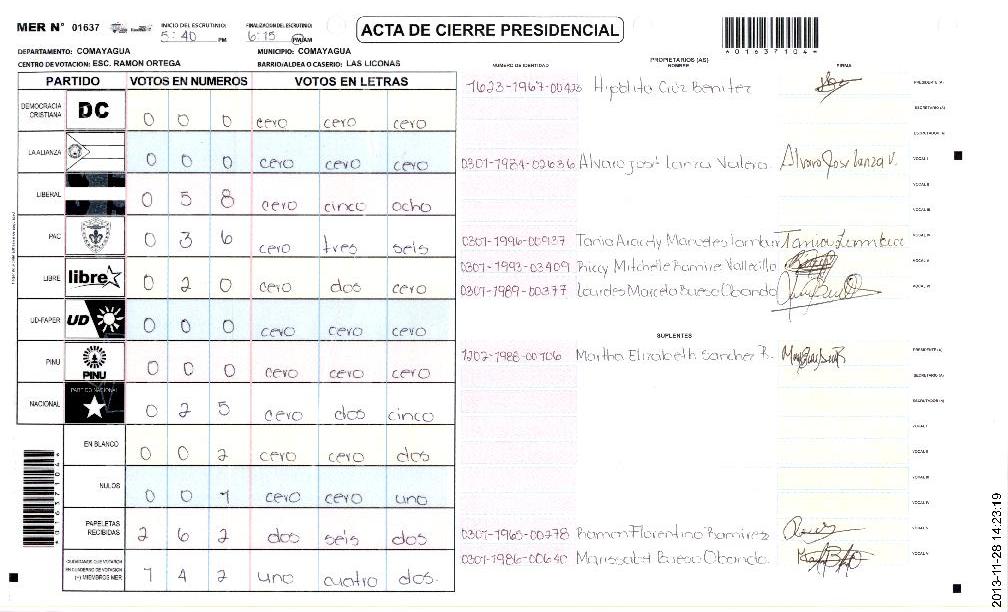 MER N° 01637
INICIO DEL ESCRUTINIO: 5:40 PM
FINALIZACION DEL ESCRUTINIO: 6:15 PM/AM
ACTA DE CIERRE PRESIDENCIAL
*01637104*
DEPARTAMENTO: COMAYAGUA
MUNICIPIO: COMAYAGUA
CENTRO DE VOTACION: ESC. RAMON ORTEGA
BARRIO/ALDEA O CASERIO: LAS LICONAS
PARTIDO VOTOS EN NUMEROS VOTOS EN LETRAS
DEMOCRACIA CRISTIANA DC 0 0 0 cero cero cero
LA ALIANZA 0 0 0 cero cero cero
LIBERAL 0 5 8 cero cinco ocho
PAC 0 3 6 cero tres seis
LIBRE libre 0 2 0 cero dos cero
UD-FAPER UD 0 0 0 cero cero cero
PINU PINU 0 0 0 cero cero cero
NACIONAL PARTIDO NACIONAL 0 2 5 cero dos cinco
EN BLANCO 0 0 2 cero cero dos
NULOS 0 0 1 cero cero uno
PAPELETAS RECIBIDAS 2 6 2 dos seis dos
CIUDADANOS QUE VOTARON
EN CUADERNO DE VOTACION
(+) MIEMBROS MER 1 4 2 uno cuatro dos.
PROPIETARIOS (AS)
NUMERO DE IDENTIDAD NOMBRE FIRMA
1623-1967-00428 Hipolito Cruz Benitez PRESIDENTE (A)
SECRETARIO (A)
ESCRUTADOR (A)
0301-1984-02636 Alvaro José Lanza Valero Alvaro Jose Lanza V. VOCAL I
VOCAL II
VOCAL III
0301-1996-00937 Tania Aracely VOCAL IV
0301-1993-03409 Mitchelle Vallecillo VOCAL V
0301-1989-00377 Lourdes Marcela Bueso Obando VOCAL VI
SUPLENTES
1202-1988-00706 Martha Elizabeth Sanchez R. PRESIDENTE (A)
SECRETARIO (A)
ESCRUTADOR (A)
VOCAL I
VOCAL II
VOCAL III
VOCAL IV
0301-1965-00778 Ramon Florentino Ramirez VOCAL V
0301-1986-00640 Marissabel Bueso Obando VOCAL VI
*01637104*
2013-11-28 14:23:19